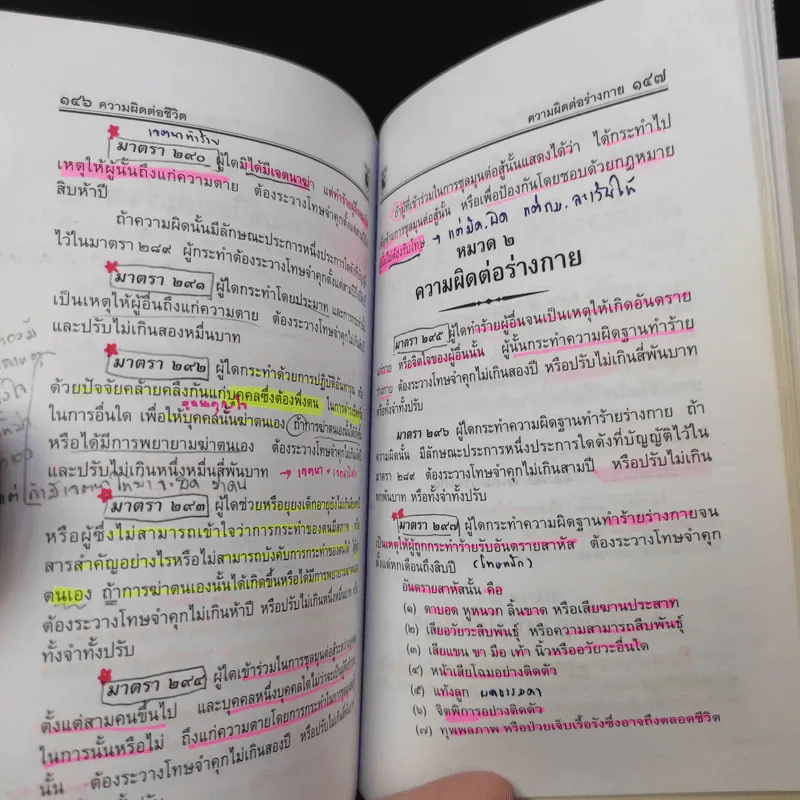 ๑๔๖ ความผิดต่อชีวิต
เจตนาทำร้าย
มาตรา ๒๙๐ ผู้ใดมิได้มีเจตนาฆ่า แต่ทำร้ายผู้อื่นจน
เหตุให้ผู้นั้นถึงแก่ความตาย ต้องระวางโทษจำคุกตั้งแต่
สิบห้าปี
ถ้าความผิดนั้นมีลักษณะประการหนึ่งประการใดดังที่
ไว้ในมาตรา ๒๘๙ ผู้กระทำต้องระวางโทษจำคุกตั้งแต่
มาตรา ๒๙๑ ผู้ใดกระทำโดยประมาท และการกระทำ
เป็นเหตุให้ผู้อื่นถึงแก่ความตาย ต้องระวางโทษจำคุกไม่เกิน
และปรับไม่เกินสองหมื่นบาท
มาตรา ๒๙๒ ผู้ใดกระทำด้วยการปฏิบัติอันทารุณ หรือ
ด้วยปัจจัยคล้ายคลึงกันแก่บุคคลซึ่งต้องพึ่งตน ในการดำรงชีพ
ในการอื่นใด เพื่อให้บุคคลนั้นฆ่าตนเอง ถ้าการฆ่าตนเองนั้นได้
หรือได้มีการพยายามฆ่าตนเอง ต้องระวางโทษจำคุกไม่เกิน
และปรับไม่เกินหนึ่งหมื่นสี่พันบาท
มาตรา ๒๙๓ ผู้ใดช่วยหรือยุยงเด็กอายุยังไม่เกิน
หรือผู้ซึ่งไม่สามารถเข้าใจว่าการกระทำของตนมีสภาพ หรือ
สารสำคัญอย่างไรหรือไม่สามารถบังคับการกระทำของตนได้
ตนเอง ถ้าการฆ่าตนเองนั้นได้เกิดขึ้นหรือได้มีการพยายามฆ่าตนเอง
ต้องระวางโทษจำคุกไม่เกินห้าปี หรือปรับไม่เกินหนึ่งหมื่นบาท หรือ
ทั้งจำทั้งปรับ
มาตรา ๒๙๔ ผู้ใดเข้าร่วมในการชุลมุนต่อสู้ระหว่างบุคคล
ตั้งแต่สามคนขึ้นไป และบุคคลหนึ่งบุคคลใดไม่ว่าจะเป็นผู้ที่เข้าร่วม
ในการนั้นหรือไม่ ถึงแก่ความตายโดยการกระทำในการชุลมุนต่อสู้
นั้น ต้องระวางโทษจำคุกไม่เกินสองปี หรือปรับไม่เกินสี่พันบาท
หรือทั้งจำทั้งปรับ
ความผิดต่อร่างกาย ๑๔๗
ถ้าผู้ที่เข้าร่วมในการชุลมุนต่อสู้นั้นแสดงได้ว่า ได้กระทำไป
ห้ามการชุลมุนต่อสู้นั้น หรือเพื่อป้องกันโดยชอบด้วยกฎหมาย
ผู้นั้นไม่ต้องรับโทษ
หมวด ๒
ความผิดต่อร่างกาย
มาตรา ๒๙๕ ผู้ใดทำร้ายผู้อื่นจนเป็นเหตุให้เกิดอันตราย
แก่กาย หรือจิตใจของผู้อื่นนั้น ผู้นั้นกระทำความผิดฐานทำร้าย
ร่างกาย ต้องระวางโทษจำคุกไม่เกินสองปี หรือปรับไม่เกินสี่พันบาท
หรือทั้งจำทั้งปรับ
มาตรา ๒๙๖ ผู้ใดกระทำความผิดฐานทำร้ายร่างกาย ถ้า
ความผิดนั้น มีลักษณะประการหนึ่งประการใดดังที่บัญญัติไว้ใน
มาตรา ๒๘๙ ต้องระวางโทษจำคุกไม่เกินสามปี หรือปรับไม่เกิน
หกพันบาท หรือทั้งจำทั้งปรับ
มาตรา ๒๙๗ ผู้ใดกระทำความผิดฐานทำร้ายร่างกายจน
เป็นเหตุให้ผู้ถูกกระทำร้ายรับอันตรายสาหัส ต้องระวางโทษจำคุก
ตั้งแต่หกเดือนถึงสิบปี (โทษหนัก)
อันตรายสาหัสนั้น คือ
(๑) ตาบอด หูหนวก ลิ้นขาด หรือเสียฆานประสาท
(๒) เสียอวัยวะสืบพันธุ์ หรือความสามารถสืบพันธุ์
(๓) เสียแขน ขา มือ เท้า นิ้วหรืออวัยวะอื่นใด
(๔) หน้าเสียโฉมอย่างติดตัว
(๕) แท้งลูก
(๖) จิตพิการอย่างติดตัว
(๗) ทุพพลภาพ หรือป่วยเจ็บเรื้อรังซึ่งอาจถึงตลอดชีวิต